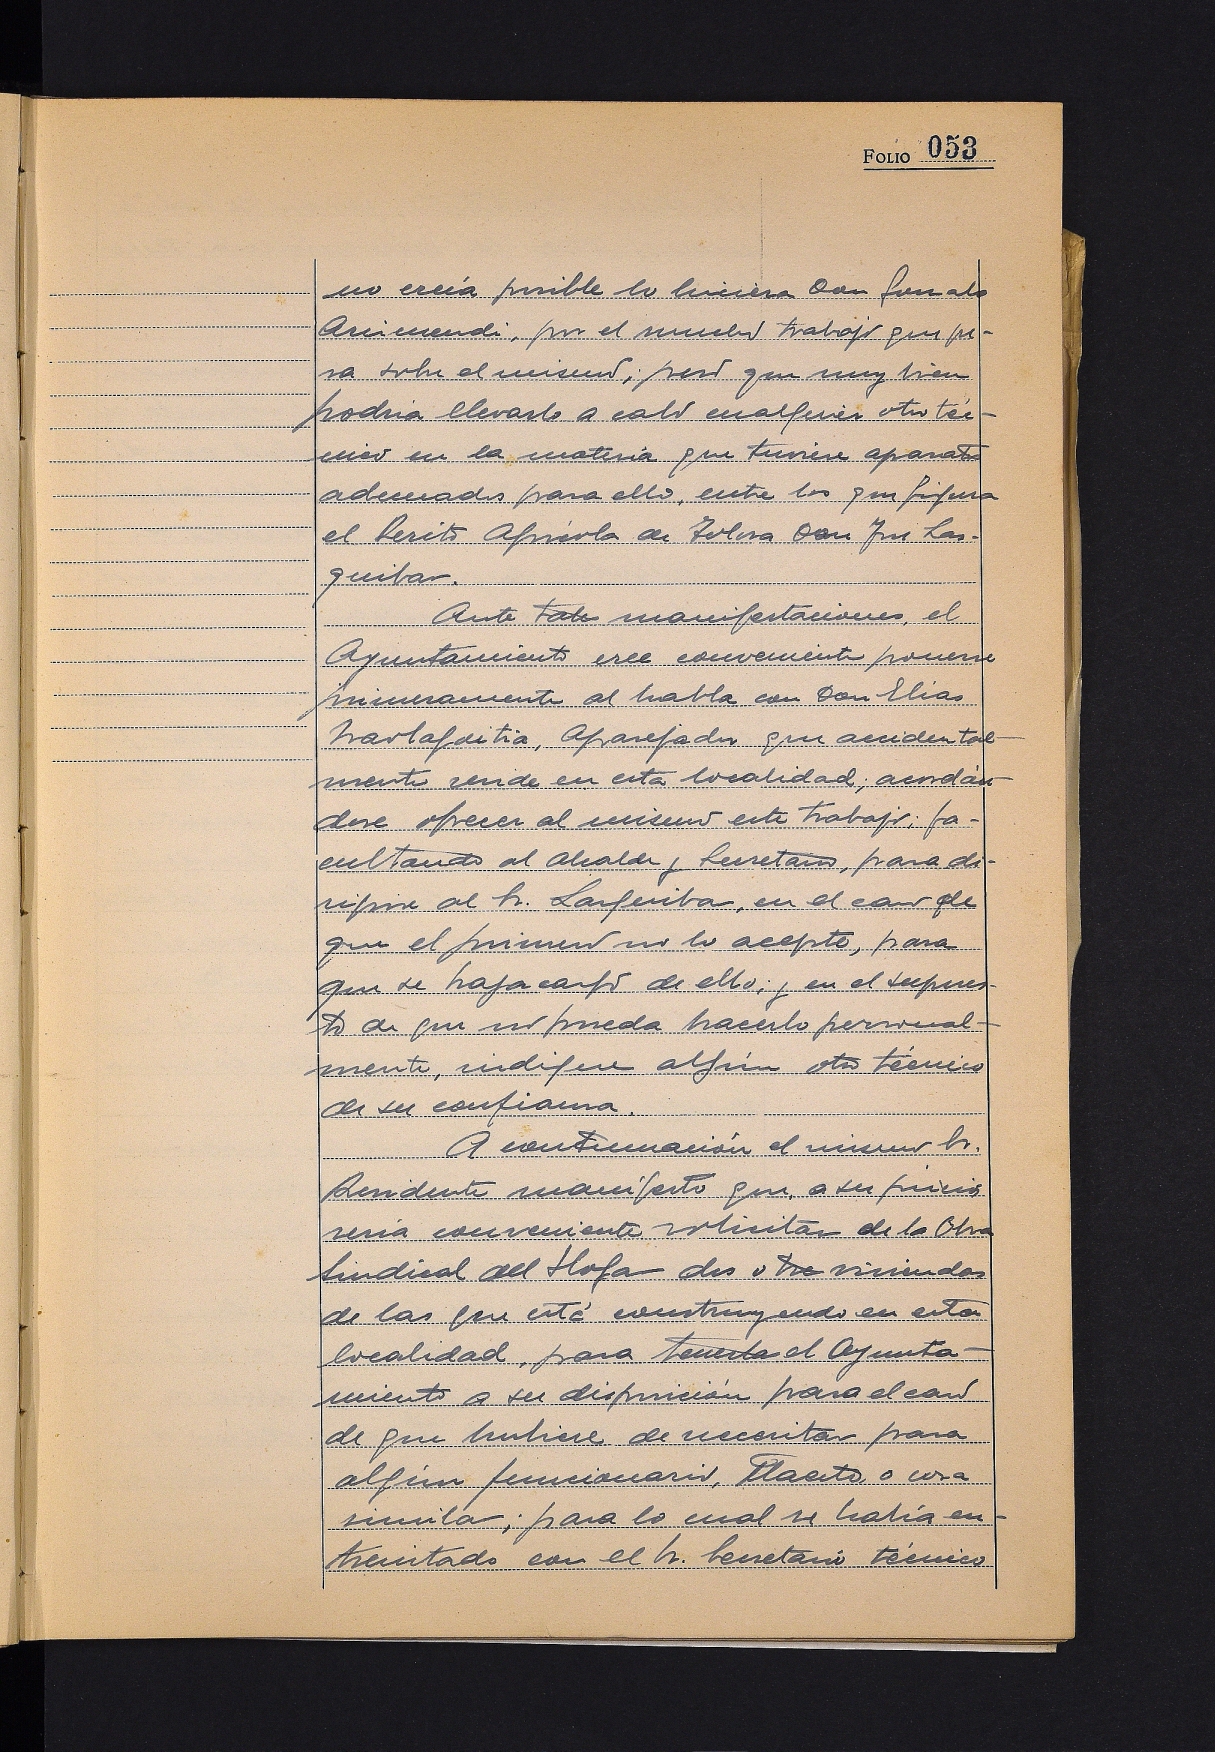 FOLIO 053
no creía posible lo hiciera Don Gonzalo
Arizmendi, por el mucho trabajo que pe-
sa sobre el mismo; pero que muy bien
podria llevarlo a cabo cualquier otro téc-
nico en la materia que tuviere aparatos
adecuados para ello, entre los que figura
el Perito Agrícola de Tolosa Don José Las-
quibar.
Ante tales manifestaciones, el
Ayuntamiento cree conveniente ponerse
primeramente al habla con Don Elias
Aparejador que accidental-
mente reside en esta localidad; acordán-
dose ofrecer al mismo este trabajo; fa-
cultando al Alcalde y Secretario, para di-
rigirse al Sr. Lasquibar, en el caso de
que el primero no lo acepte, para
que se haga cargo de ello; y en el supues-
to de que no pueda hacerlo personal-
mente, indique algún otro técnico
de su confianza.
A continuación el mismo Sr.
Presidente manifestó que, a su juicio
sería conveniente solicitar de la Obra
Sindical del Hogar dos o tres viviendas
de las que está construyendo en esta
localidad, para tenerlas el Ayunta-
miento a su disposición para el caso
de que hubiere de necesitar para
algún funcionario, Maestro, o cosa
similar; para lo cual se había en-
trevistado con el Sr. Secretario técnico